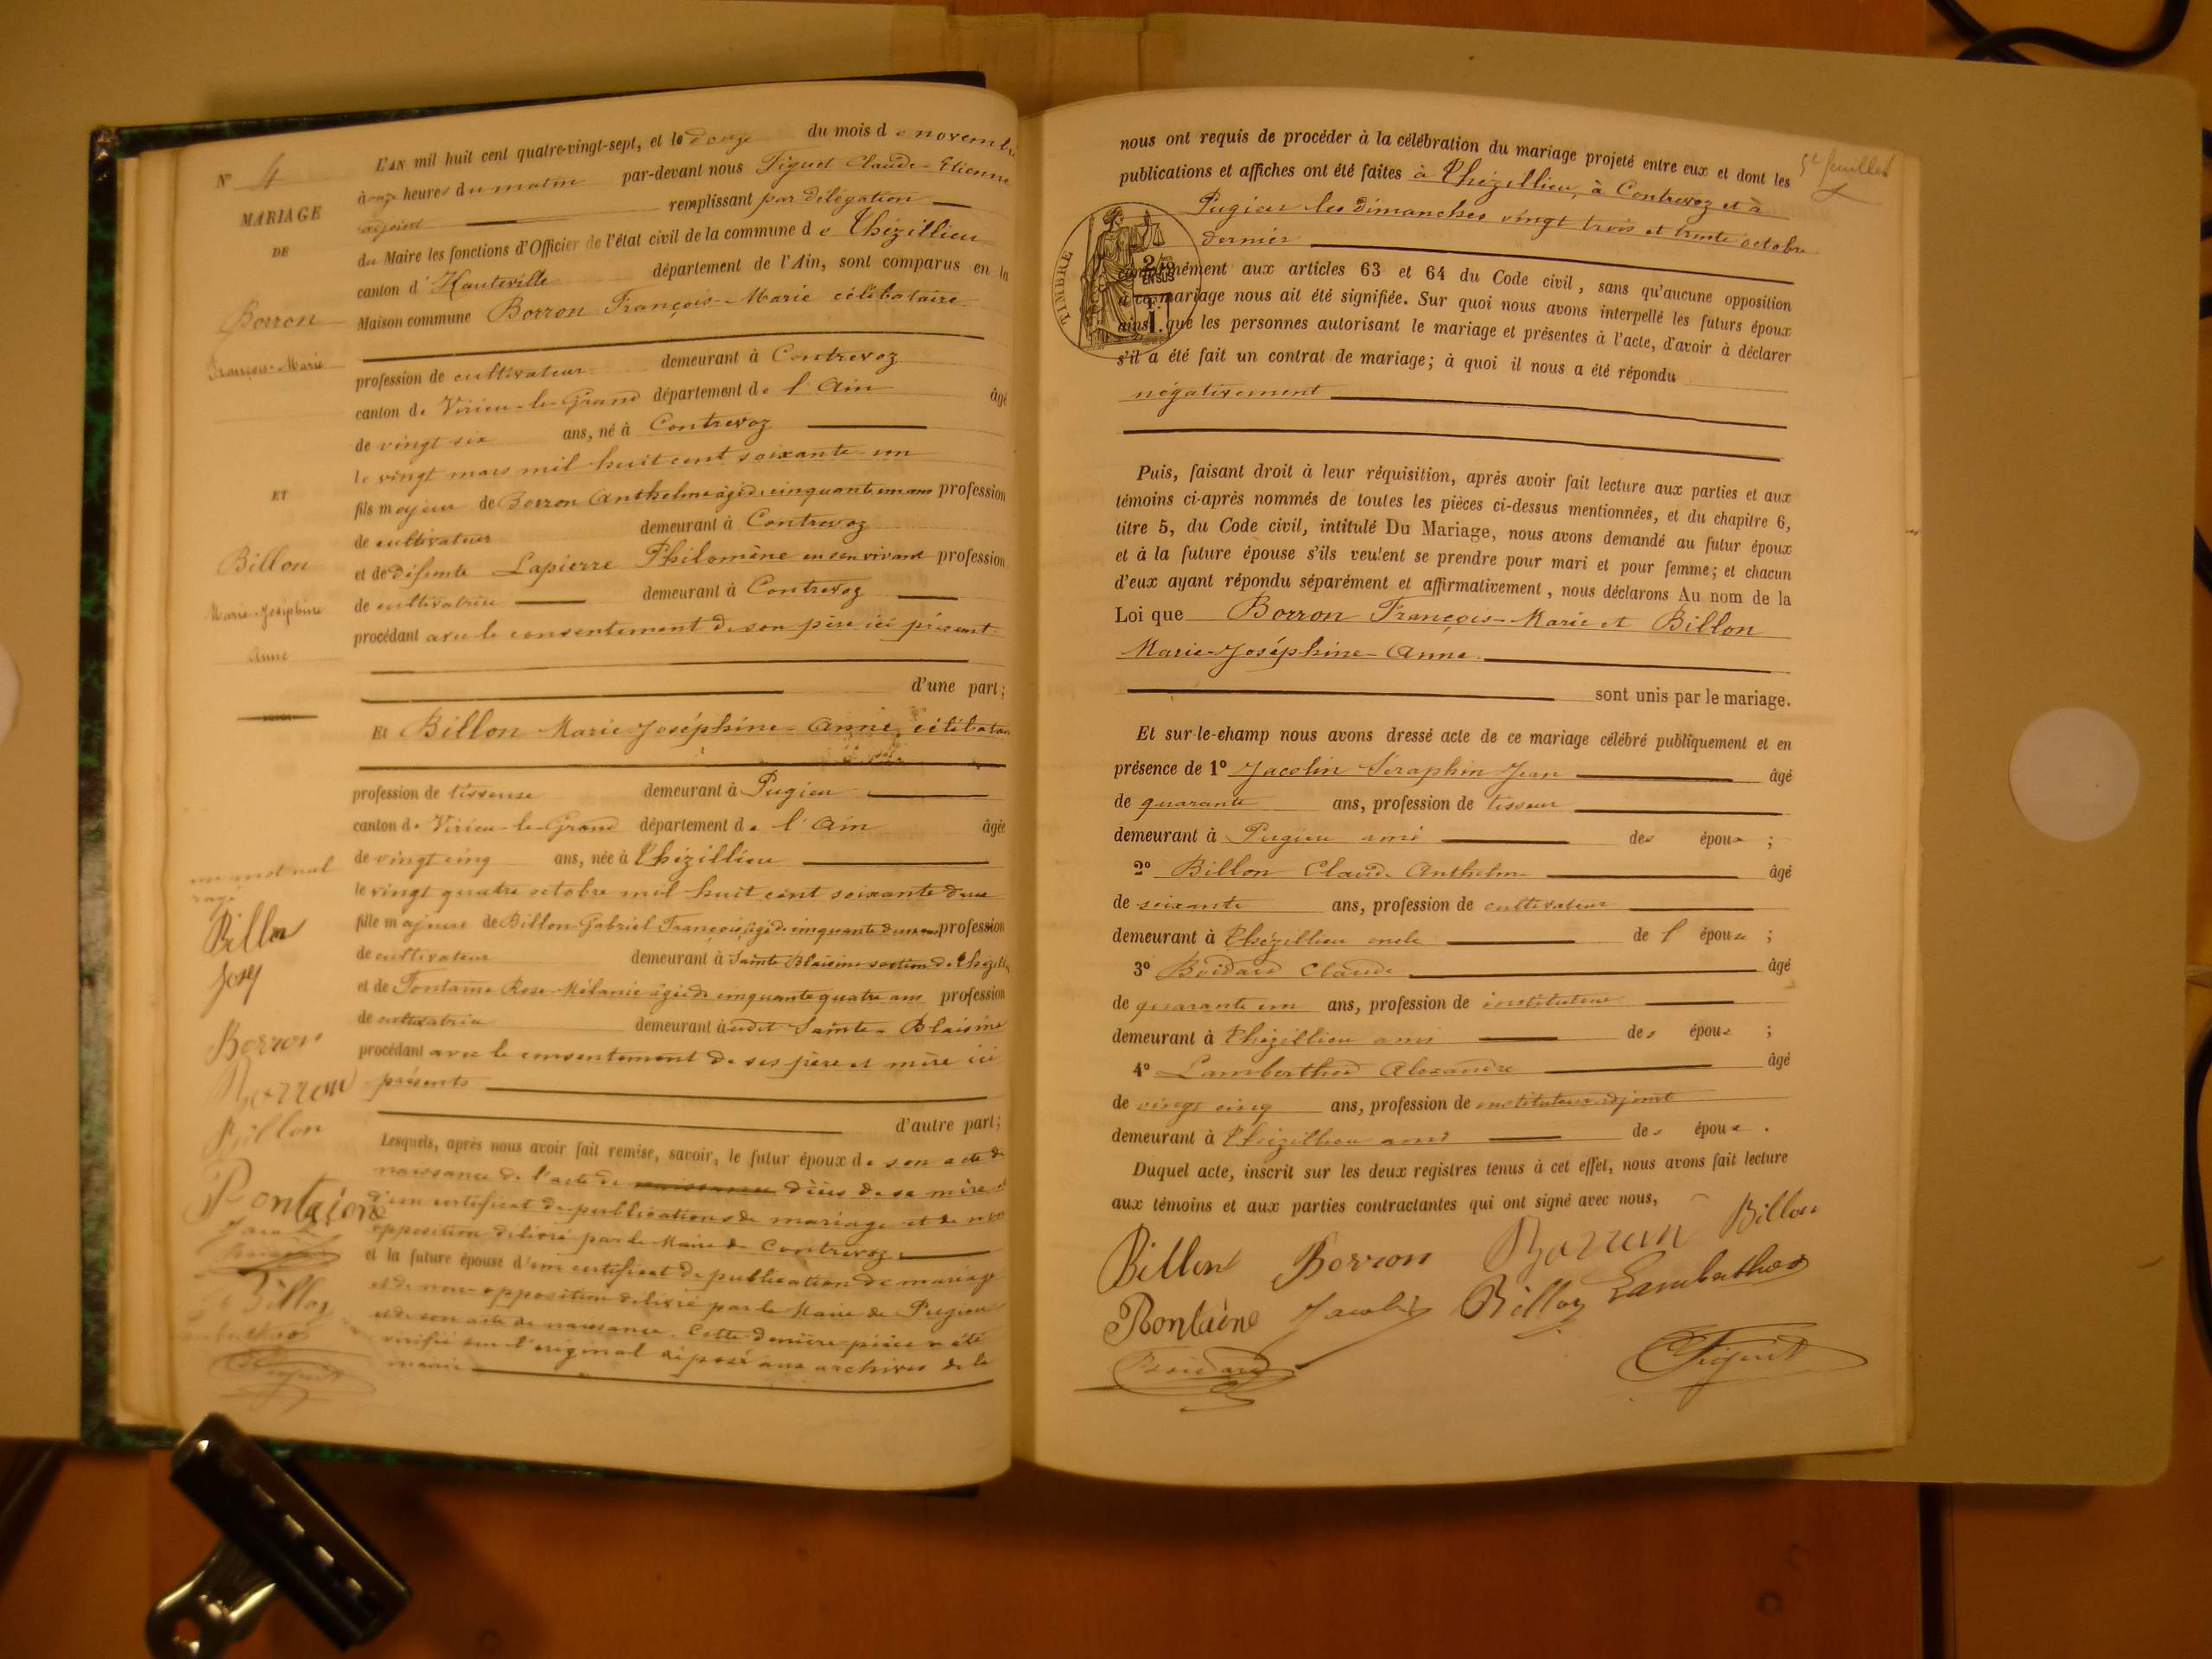 N° 4
MARIAGE
DE
Borron
François-Marie
ET
Billon
Marie-Joséphine
Anne
L'AN mil huit cent quatre-vingt-sept, et le douze du mois de novembre
à onze heures du matin par-devant nous Figuet Claude-Etienne
adjoint remplissant par délégation
du Maire les fonctions d'Officier de l'état civil de la commune de Thézillieu
canton d'Hauteville département de l'Ain, sont comparus en la
Maison commune Borron François-Marie célibataire
profession de cultivateur demeurant à Contrevoz
canton de Virieu-le-Grand département de l'Ain âgé
de vingt six ans, né à Contrevoz
le vingt mars mil huit cent soixante un
fils majeur de Borron Anthelme âgé de cinquante un ans profession
de cultivateur demeurant à Contrevoz
et de défunte Lapierre Philomène en son vivant profession
de cultivatrice demeurant à Contrevoz
procédant avec le consentement de son père ici présent.
d'une part;
Et Billon Marie-Joséphine-Anne, célibataire
profession de tisseuse demeurant à Pugieu
canton de Virieu-le-Grand département de l'Ain âgée
de vingt cinq ans, née à Thézillieu
le vingt quatre octobre mil huit cent soixante deux
fille majeure de Billon Gabriel François, âgé de cinquante deux ans profession
de cultivateur demeurant à Sainte Blaisine section de Thézillieu
et de Fontaine Rose-Mélanie âgée de cinquante quatre ans profession
de cultivatrice demeurant à udit Sainte-Blaisine
procédant avec le consentement de ses père et mère ici
présents
d'autre part;
Lesquels, après nous avoir fait remise, savoir, le futur époux de son acte de
naissance de l'acte de naissance décès de sa mère et
d'un certificat de publications de mariage et de non
opposition délivré par le Maire de Contrevoz.
et la future épouse d'un certificat de publication de mariage
et de non-opposition délivré par le Maire de Pugieu
et de son acte de naissance. Cette dernière pièce a été
vérifiée sur l'original déposé aux archives de la
mairie
un mot nul
rayé
Billon
Josep
Borron
Borron
Billon
Fontaine
Billon
5e feuillet
nous ont requis de procéder à la célébration du mariage projeté entre eux et dont les
publications et affiches ont été faites à Thézillieu, à Contrevoz et à
Pugieu les dimanches vingt trois et trente octobre
dernier
TIMBRE
2/10 EN SUS
conformément aux articles 63 et 64 du Code civil, sans qu'aucune opposition
à ce mariage nous ait été signifiée. Sur quoi nous avons interpellé les futurs époux
ainsi que les personnes autorisant le mariage et présentes à l'acte, d'avoir à déclarer
s'il a été fait un contrat de mariage; à quoi il nous a été répondu
négativement
Puis, faisant droit à leur réquisition, après avoir fait lecture aux parties et aux
témoins ci-après nommés de toutes les pièces ci-dessus mentionnées, et du chapitre 6,
titre 5, du Code civil, intitulé Du Mariage, nous avons demandé au futur époux
et à la future épouse s'ils veulent se prendre pour mari et pour femme; et chacun
d'eux ayant répondu séparément et affirmativement, nous déclarons Au nom de la
Loi que Borron François-Marie et Billon
Marie-Joséphine-Anne.
sont unis par le mariage.
Et sur-le-champ nous avons dressé acte de ce mariage célébré publiquement et en
présence de 1° Jacolin Séraphin Jean âgé
de quarante ans, profession de tisseur
demeurant à Pugieu ami des époux ;
2° Billon Claude Anthelme âgé
de soixante ans, profession de cultivateur
demeurant à Thézillieu oncle de l'épouse ;
3° Boidard Claude âgé
de quarante un ans, profession de instituteur
demeurant à Thézillieu ami des époux ;
4° Lamberthod Alexandre âgé
de vingt cinq ans, profession de instituteur adjoint
demeurant à Thézillieu ami des époux .
Duquel acte, inscrit sur les deux registres tenus à cet effet, nous avons fait lecture
aux témoins et aux parties contractantes qui ont signé avec nous,
Billon Borron Borron Billon
Fontaine Jacolin Billon Lamberthod
Boidard Figuet